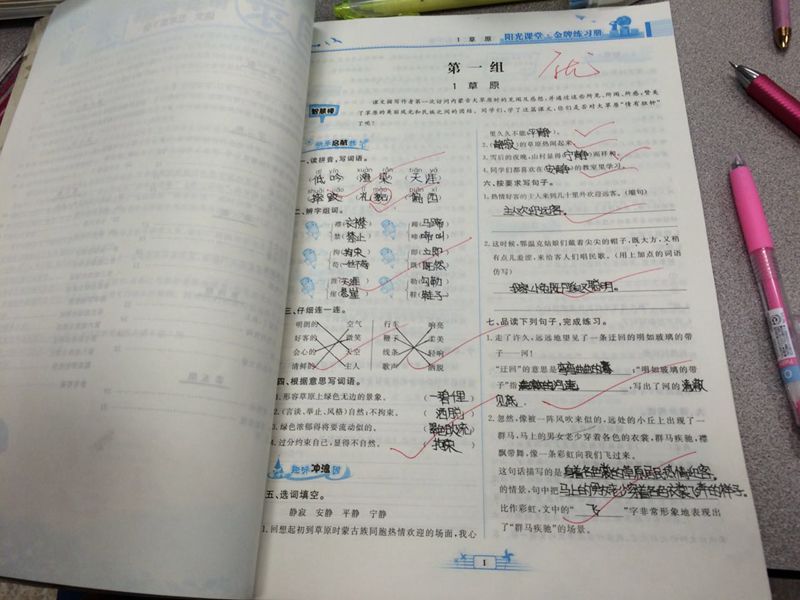 1 草 原
阳光课堂·金牌练习册
第一组
优
1 草 原
课文描写作者第一次访问内蒙古大草原时的见闻及感想，并通过这些所见、所闻、所感，赞美
了草原的美丽风光和民族之间的团结。同学们，学了这篇课文，你们是否对大草原“情有独钟”
了呢？
一、读拼音，写词语。
dī yín xuàn rǎn tiān yá
(低吟)(渲染)(天涯)
(礼貌)
二、辨字组词。
襟(衣襟) 蹄(马蹄)
禁(禁止) 啼(啼叫)
拘(拘束) 即(立即)
苟(一丝不苟) 既(既然)
涯(天涯) 勒(勾勒)
崖(悬崖) 鞋(鞋子)
三、仔细连一连。
明朗的 空气 行车 响亮
好客的 微笑 鞭子 柔美
会心的 天空 线条 轻响
清鲜的 主人 歌声 洒脱
四、根据意思写词语。
1.形容草原上绿色无边的景象。(一碧千里)
2.(言谈、举止、风格)自然；不拘束。(洒脱)
3.绿色浓郁得将要流动似的。(翠色欲流)
4.过分约束自己，显得不自然。(拘束)
趣味冲浪园
五、选词填空。
静寂 安静 平静 宁静
1.回想起初到草原时蒙古族同胞热情欢迎的场面，我心
里久久不能(平静)。
2.(静寂)的草原热闹起来。
3.雪后的夜晚，山村显得(宁静)而祥和。
4.同学们都喜欢在(安静)的教室里学习。
六、按要求写句子。
1.热情好客的主人来到几十里外欢迎远客。(缩句)
主人欢迎远客。
2.这时候，鄂温克姑娘们戴着尖尖的帽子，既大方，又稍
有点儿羞涩，来给客人们唱民歌。(用上加点的词语
仿写)
我家小兔既可爱又聪明。
七、品读下列句子，完成练习。
1.走了许久，远远地望见了一条迂回的明如玻璃的带
子——河！
“迂回”的意思是弯弯曲曲的；“明如玻璃的带
子”指，写出了河的清澈
见底
2.忽然，像被一阵风吹来似的，远处的小丘上出现了一
群马，马上的男女老少穿着各色的衣裳，群马疾驰，襟
飘带舞，像一条彩虹向我们飞过来。
这句话描写的是身着各色裳的草原民热情迎客
的情景，句中把马上的男女老少穿着各色衣裳飞奔的样子
比作彩虹，文中的“飞”字非常形象地表现出
了“群马疾驰”的场景。
1